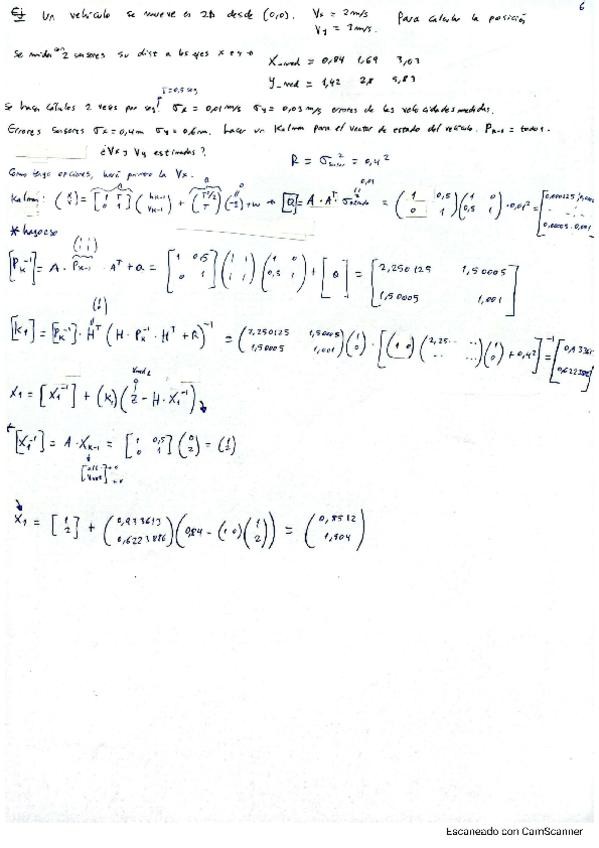 Ej Un vehículo se mueve en 2D desde (0,0). Vx = 2 m/s Para calcular la posición
6
Vy = 3 m/s.
se miden con 2 sensores su dist a los ejes x e y →
X_med = 0,84 1,69 3,03
Y_med = 1,42 2,8 5,83
T=0,5 seg
Se hacen cálculos 2 veces por seg. σx = 0,01 m/s σy = 0,03 m/s errores de las velocidades medidas.
Errores sensores σx = 0,4m σy = 0,6m. hacer un Kalman para el vector de estado del vehículo. Pk-1 = todo 1.
¿Vx y Vy estimadas?
R = σ² = 0,4²
Como tengo opciones, haré primero la Vx.
Kalman: [Q] = A · Aᵀ · σ = (1 0,5; 0 1)(1 0; 0,5 1) · 0,01² = [0,000125
0,0005 0,001
[Pk⁻¹] = A · Pk-1 · Aᵀ + Q = [1 0,5; 0 1](1 1; 1 1)(1 0; 0,5 1) + [Q] = [2,250125 1,50005; 1,50005 1,001]
[K1] = [Pk⁻¹] · Hᵀ (H · Pk⁻¹ · Hᵀ + R)⁻¹ = (2,250125 1,50005; 1,50005 1,001)(1; 0) · [(1 0)(2,25.. ..; .. ..)(1; 0) + 0,4²]⁻¹ =
X1 = [X1⁻¹] + (K1)(Z - H · X1⁻¹)
[X1⁻¹] = A · Xk-1 = [1 0,5; 0 1](0; 2) = (1; 2)
X1 = [1; 2] + (0,933613; 0,6223886)(0,84 - (1 0)(1; 2)) = (0,8512; 1,904)
Escaneado con CamScanner